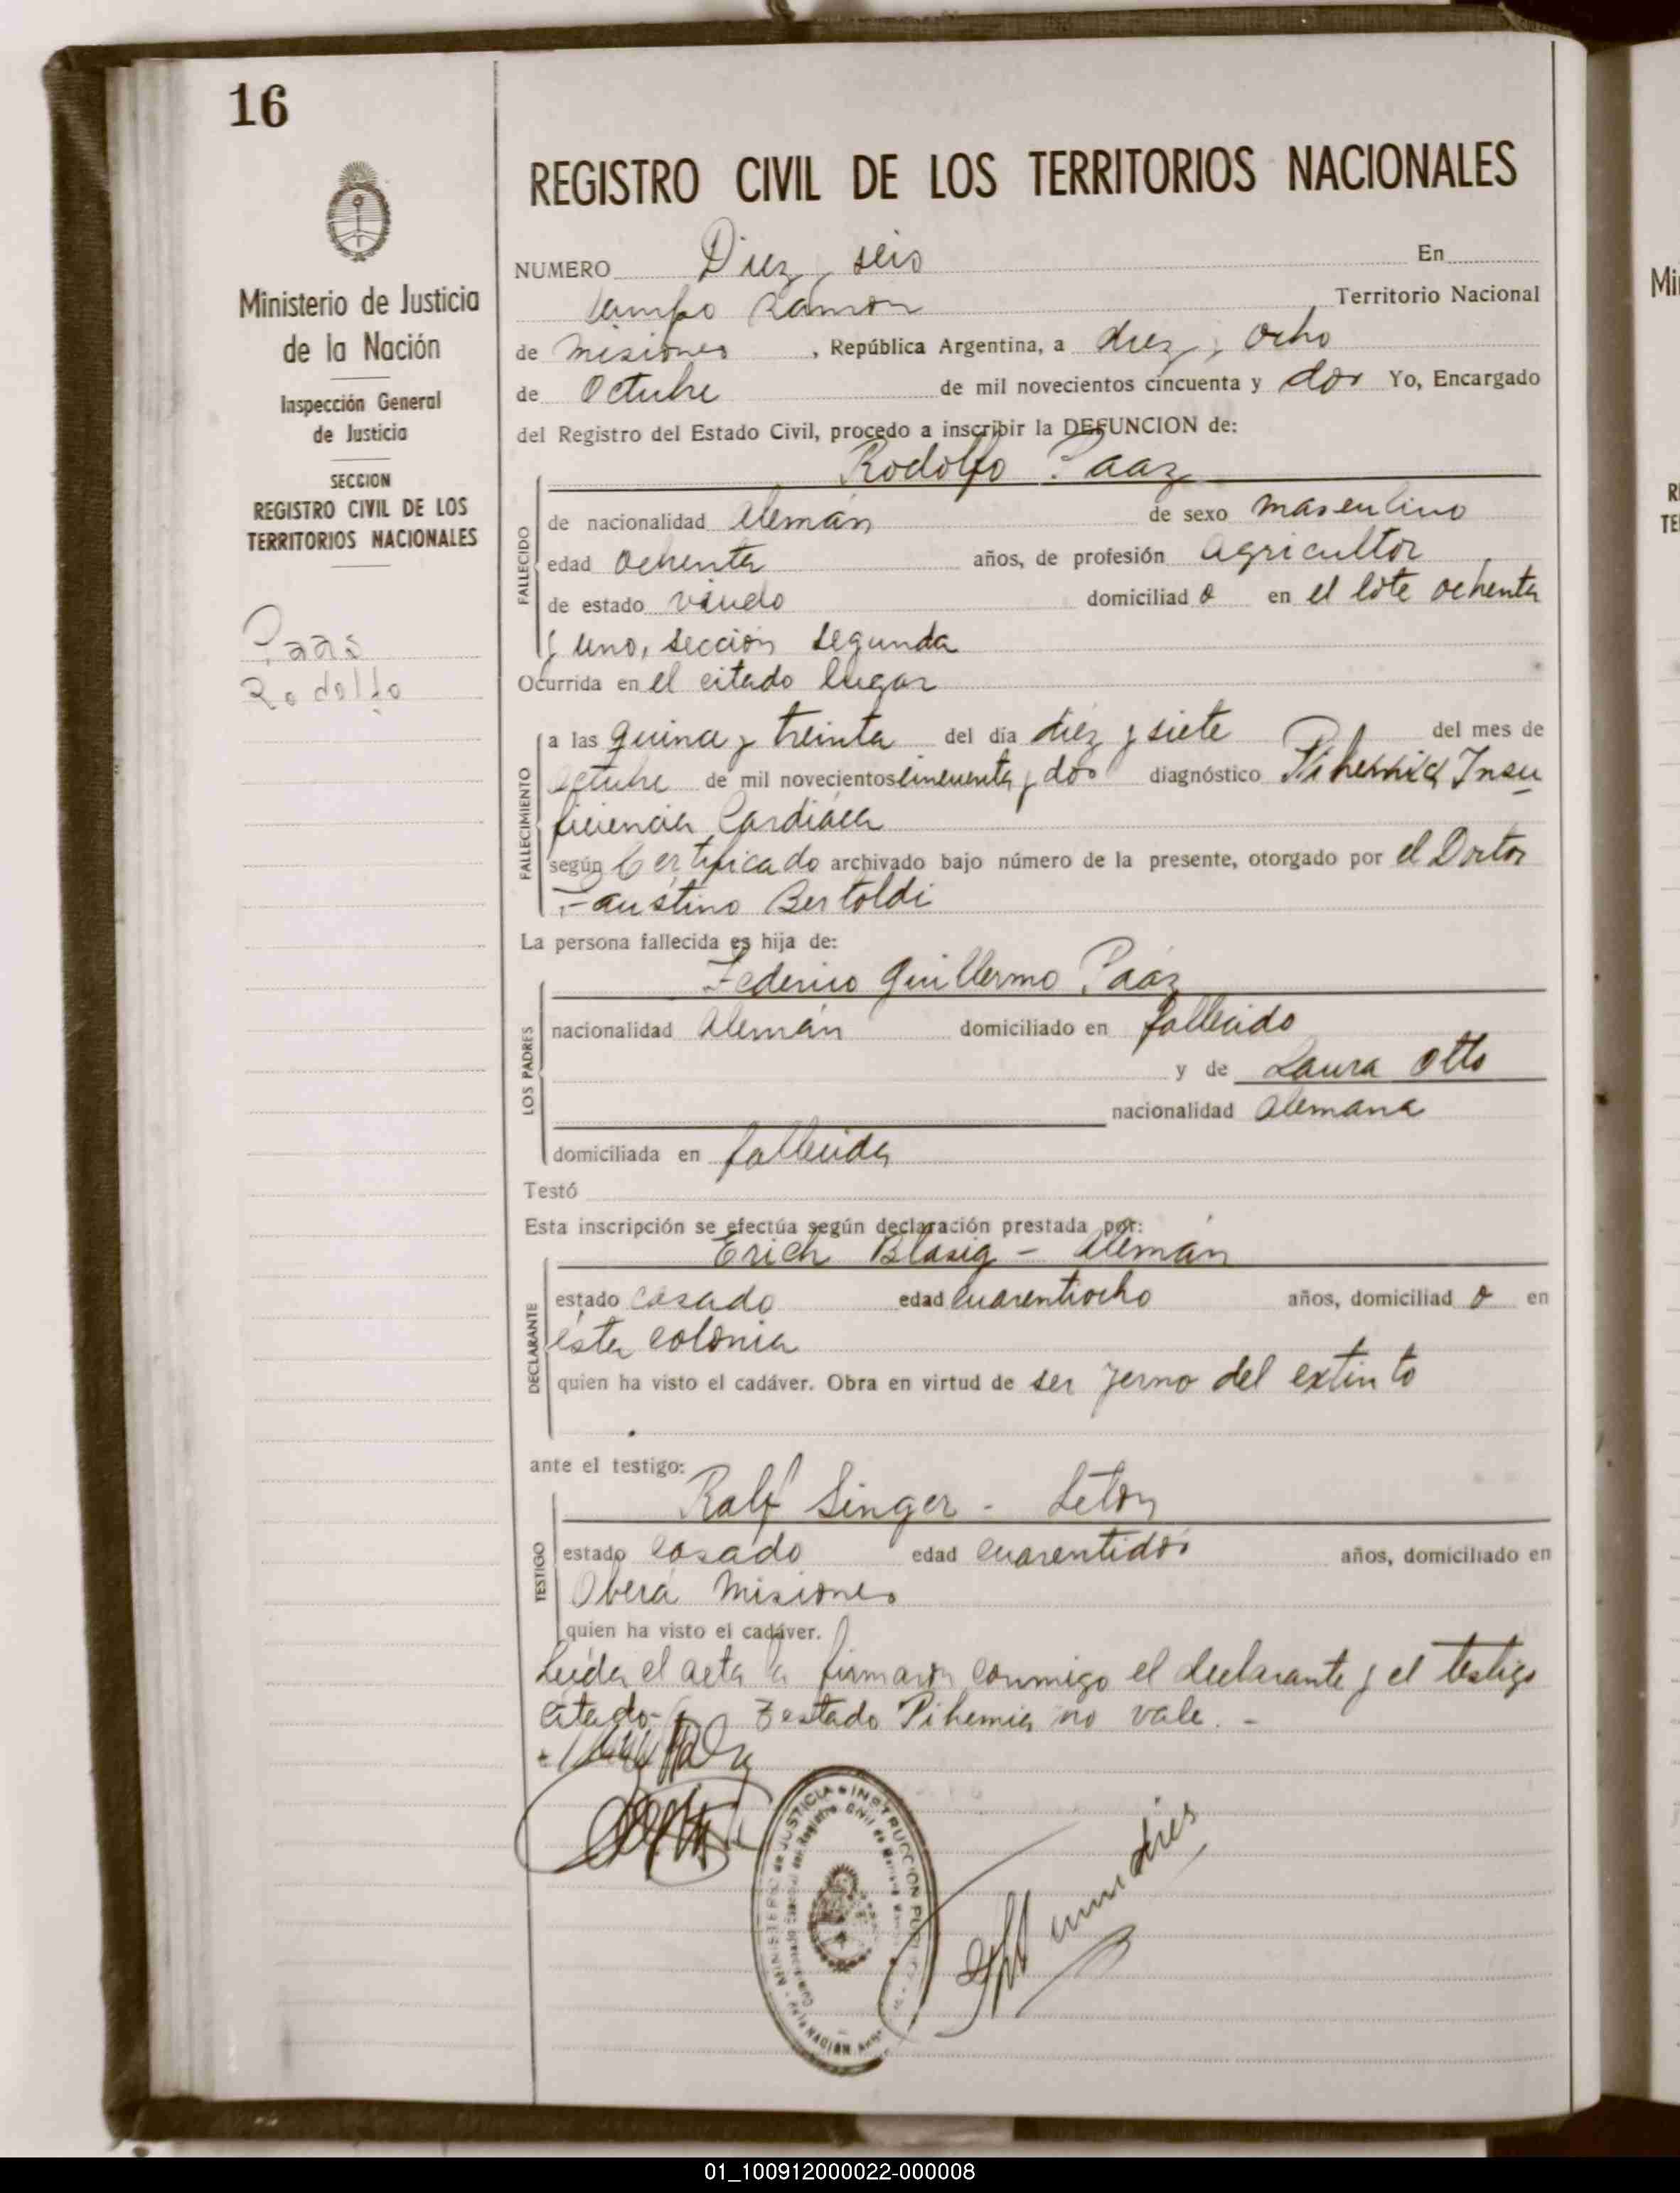 16
Ministerio de Justicia
de la Nación
Inspección General
de Justicia
SECCION
REGISTRO CIVIL DE LOS
TERRITORIOS NACIONALES
Paas
Rodolfo
REGISTRO CIVIL DE LOS TERRITORIOS NACIONALES
NUMERO Diez y seis En
Campo Ramon Territorio Nacional
de Misiones, República Argentina, a diez y ocho
de Octubre de mil novecientos cincuenta y dos Yo, Encargado
del Registro del Estado Civil, procedo a inscribir la DEFUNCION de:
Rodolfo Paaz
FALLECIDO
de nacionalidad Alemán de sexo masculino
edad Ochenta años, de profesión agricultor
de estado viudo domiciliado en el lote ochenta
y uno, sección segunda
Ocurrida en el citado lugar
FALLECIMIENTO
a las quince y treinta del día diez y siete del mes de
Octubre de mil novecientos cincuenta y dos diagnóstico Pihemia Insu
ficiencia Cardiáca
según Certificado archivado bajo número de la presente, otorgado por el Doctor
Faustino Bertoldi
La persona fallecida es hija de:
LOS PADRES
Federico Guillermo Paáz
nacionalidad Alemán domiciliado en fallecido
y de Laura Otto
nacionalidad Alemana
domiciliada en fallecida
Testó
Esta inscripción se efectúa según declaración prestada por:
DECLARANTE
Erich Blasig - Alemán
estado casado edad cuarentiocho años, domiciliado en
ésta colonia
quien ha visto el cadáver. Obra en virtud de ser yerno del extinto
ante el testigo:
TESTIGO
Ralf Singer - Letón
estado casado edad cuarentidós años, domiciliado en
Oberá Misiones
quien ha visto el cadáver.
Leída el acta la firmaron conmigo el declarante y el testigo
citado- Testado Pihemia no vale. -
MINISTERIO DE JUSTICIA e INSTRUCCION
NACION
Mi
01_100912000022-000008